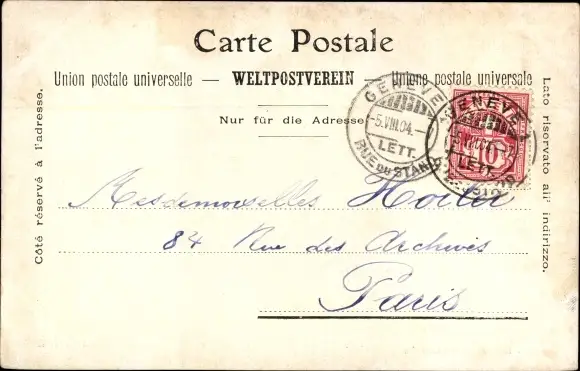 Carte Postale
Union postale universelle — WELTPOSTVEREIN — Unione postale universale
Nur für die Adresse
Côté réservé à l'adresse.
Lato riservato all' indirizzo.
GENÈVE
-5.VIII.04.-
LETT.
RUE DU STAND
GENÈVE
VIII.04
LETT.
10
Mesdemoiselles
84 Rue des Archives
Paris